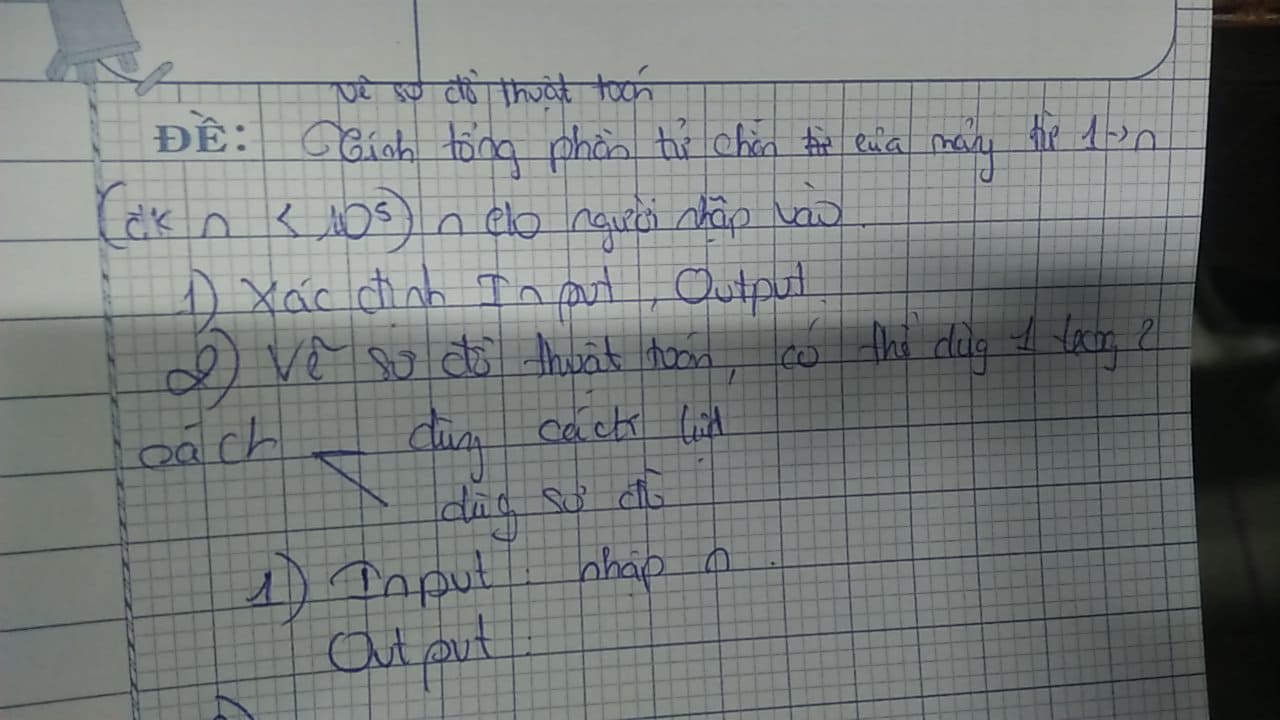 Vẽ sơ đồ thuật toán
ĐỀ: Tính tổng phần tử chẵn của mảng từ 1→n
(đk n < 10⁵) n do người nhập vào
1) Xác định Input, Output.
2) Vẽ sơ đồ thuật toán, có thể dùng 1 trong 2
cách dùng cách liệt
dùng sơ đồ
1) Input: nhập n.
Output: